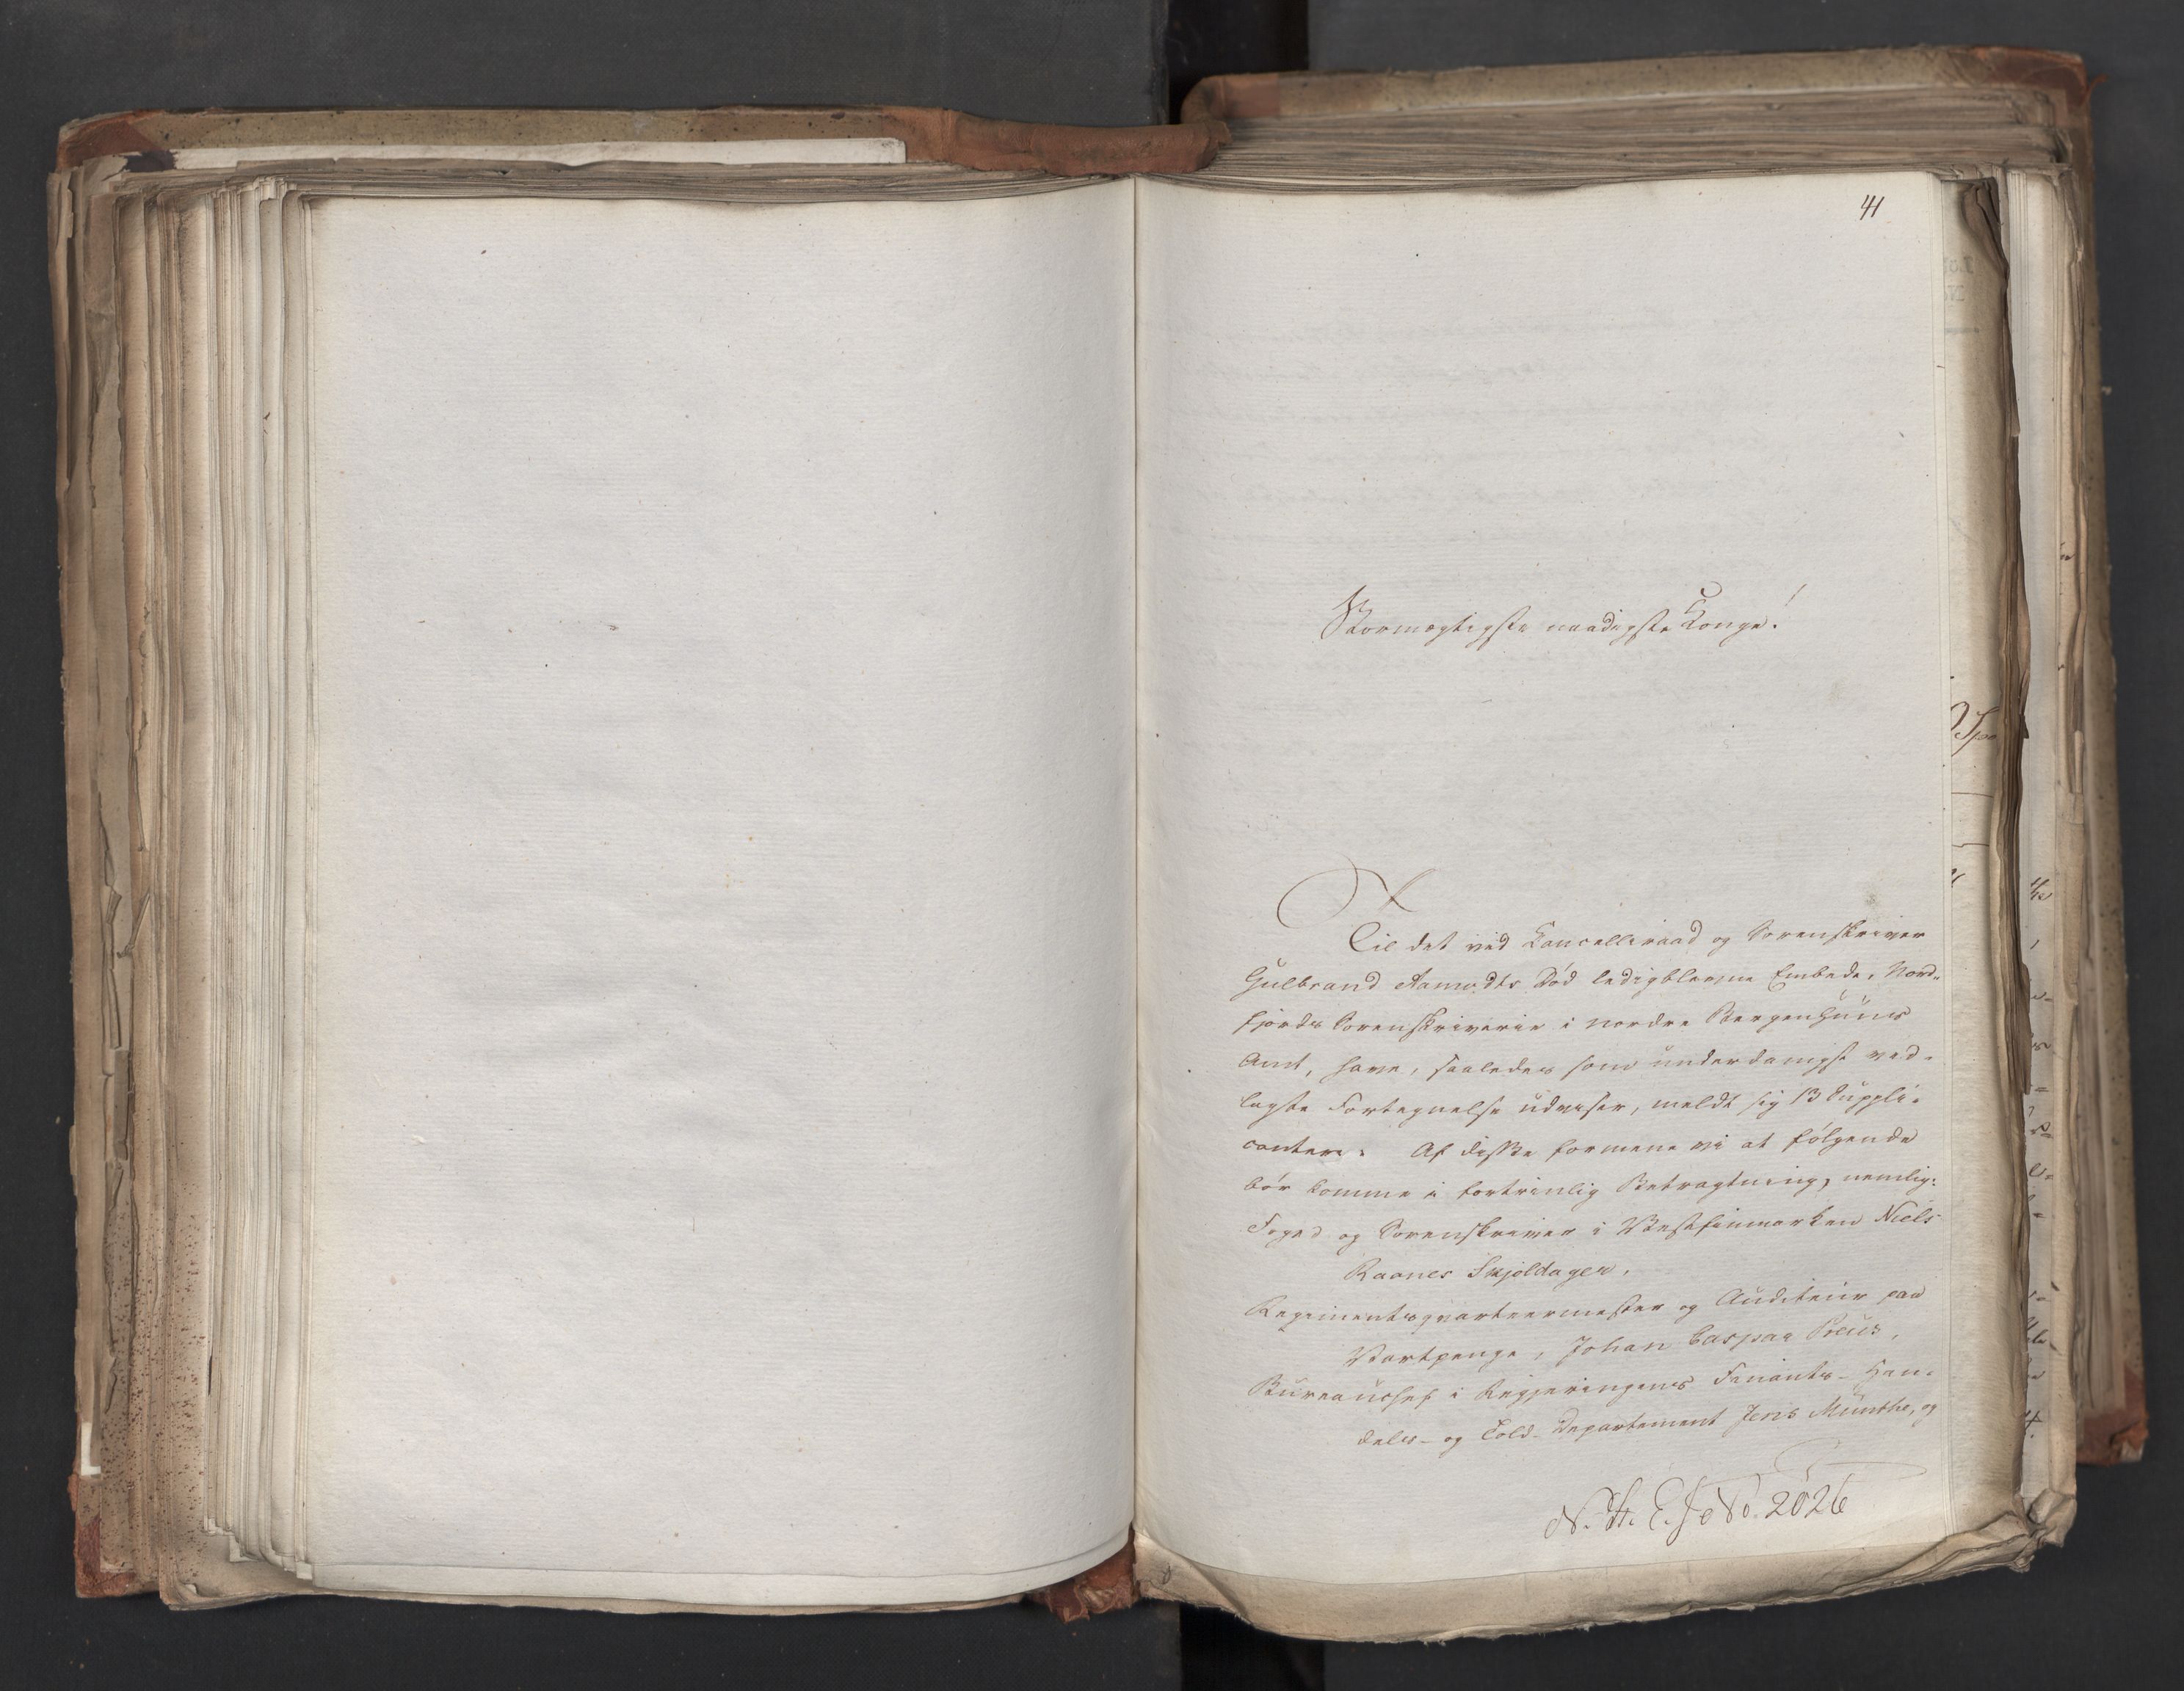 41
Stormægtigste naadigste Konge!
Til det ved Cancelliraad og Sorenskriver
Gulbrand Aamodts Død ledigblevne Embede, Nord-
fjords Sorenskriverie i nordre Bergenhuus
Amt, have, saaledes som underdanigst ved-
lagte Fortegnelse udviser, meldt sig 13 Suppli-
cantere. Af disse formene vi at følgende
bør komme i fortrinlig Betragtning, nemlig:
Foged og Sorenskriver i Vestfinmarken Niels
Raanes Skjoldager,
Regimentsqvarteermester og Auditeur paa
Vartpenge, Johan Caspar Preus,
Bureauchef i Regjeringens Finants- Han-
dels- og Told-Departement Jens Munthe, og
No. 2026